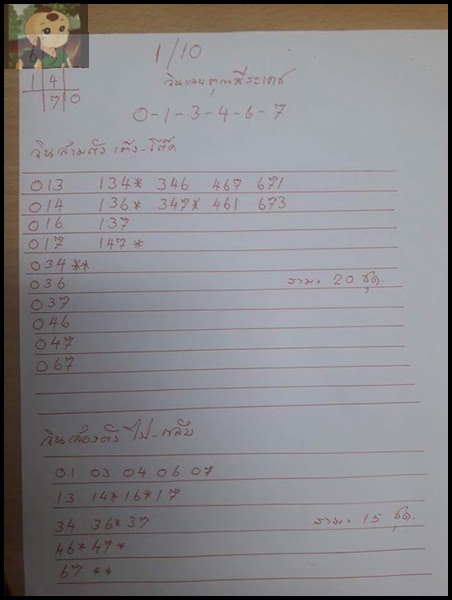 1/10
6
1 4
7 0
วินเลข
0-1-3-4-6-7
วินสามตัว เต็ง-โต๊ด
013 134* 346 467 671
014 136* 347* 461 673
016 137
017 147*
034**
036 รวม. 20 ชุด.
037
046
047
067
วินสองตัว ไป-กลับ
01 03 04 06 07
13 14* 16* 17
34 36* 37 รวม. 15 ชุด.
46* 47*
67 **